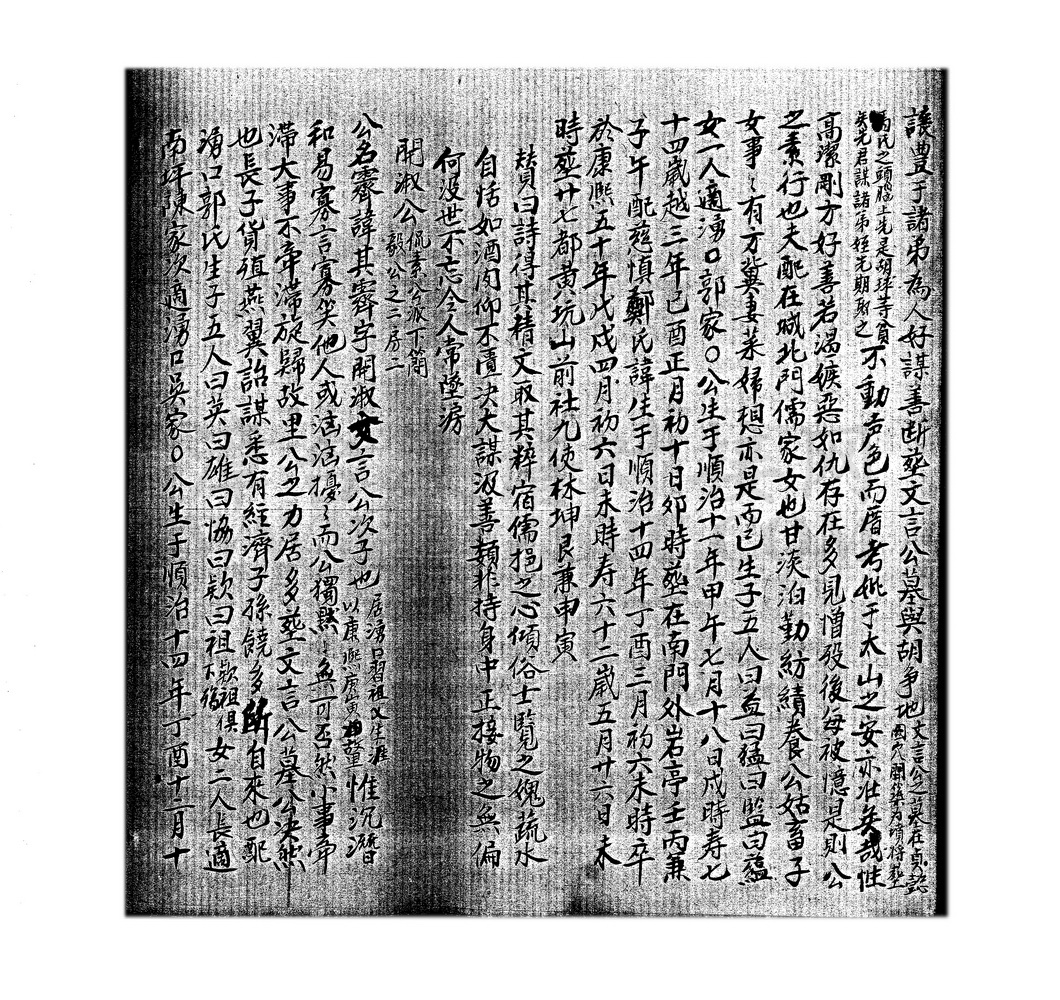 讓豊于諸弟為人好謀善断塟文言公墓與胡爭地文言公之墓在貟說
圖穴開築為墳将塟
為民之頭腦上先是胡琫等貪
矣先君謀諸弟姪先期塟之不動声色而厝考妣于太山之安亦壮矣哉性
高潔剛方好善若渴嫉惡如仇存在多見憎殁後每被憶是則公
之素行也夫配在城北門儒家女也甘淡泊勤紡績養公姑畜子
女事〻有方冀妻萊婦想亦是而已生子五人曰孟曰猛曰監曰蘊
女一人適湧口郭家〇公生于順治十一年甲午七月十八日戌時寿七
十四歲越三年己酉正月初十日夘時塟在南門外岩亭壬丙兼
子午配慈慎鄭氏諱生于順治十四年丁酉三月初六未時卒
於康熙五十年戊戌四月初六日未時寿六十二歲五月廿六日未
時塟廿七都黄坑山前社九使林坤艮兼申寅
賛曰詩得其精文取其粹宿儒挹之心傾俗士覧之媿蔬水
自恬如酒肉仰不瀆决大謀汲善類非持身中正接物之無偏
何没世不忘令人常墜淚
開淑公侃素公派下簡
毅公之二房二
公名霽諱其霽字開淑文言公次子也居湧口習祖父生涯
以康熙庚寅䡖鼇惟沉潛
和易寡言寡笑他人或滔滔擾〻而公獨黙〻無可否然小事牵
滞大事不牵滞旋歸故里公之力居多塟文言公墓公决然
也長子貨殖燕翼詒謀悉有經濟子孫饒多所自來也配
湧口郭氏生子五人曰英曰雄曰恊曰欵曰祖欵祖俱
不傳女二人長適
南坪陳家次適湧口吳家〇公生于順治十四年丁酉十二月十